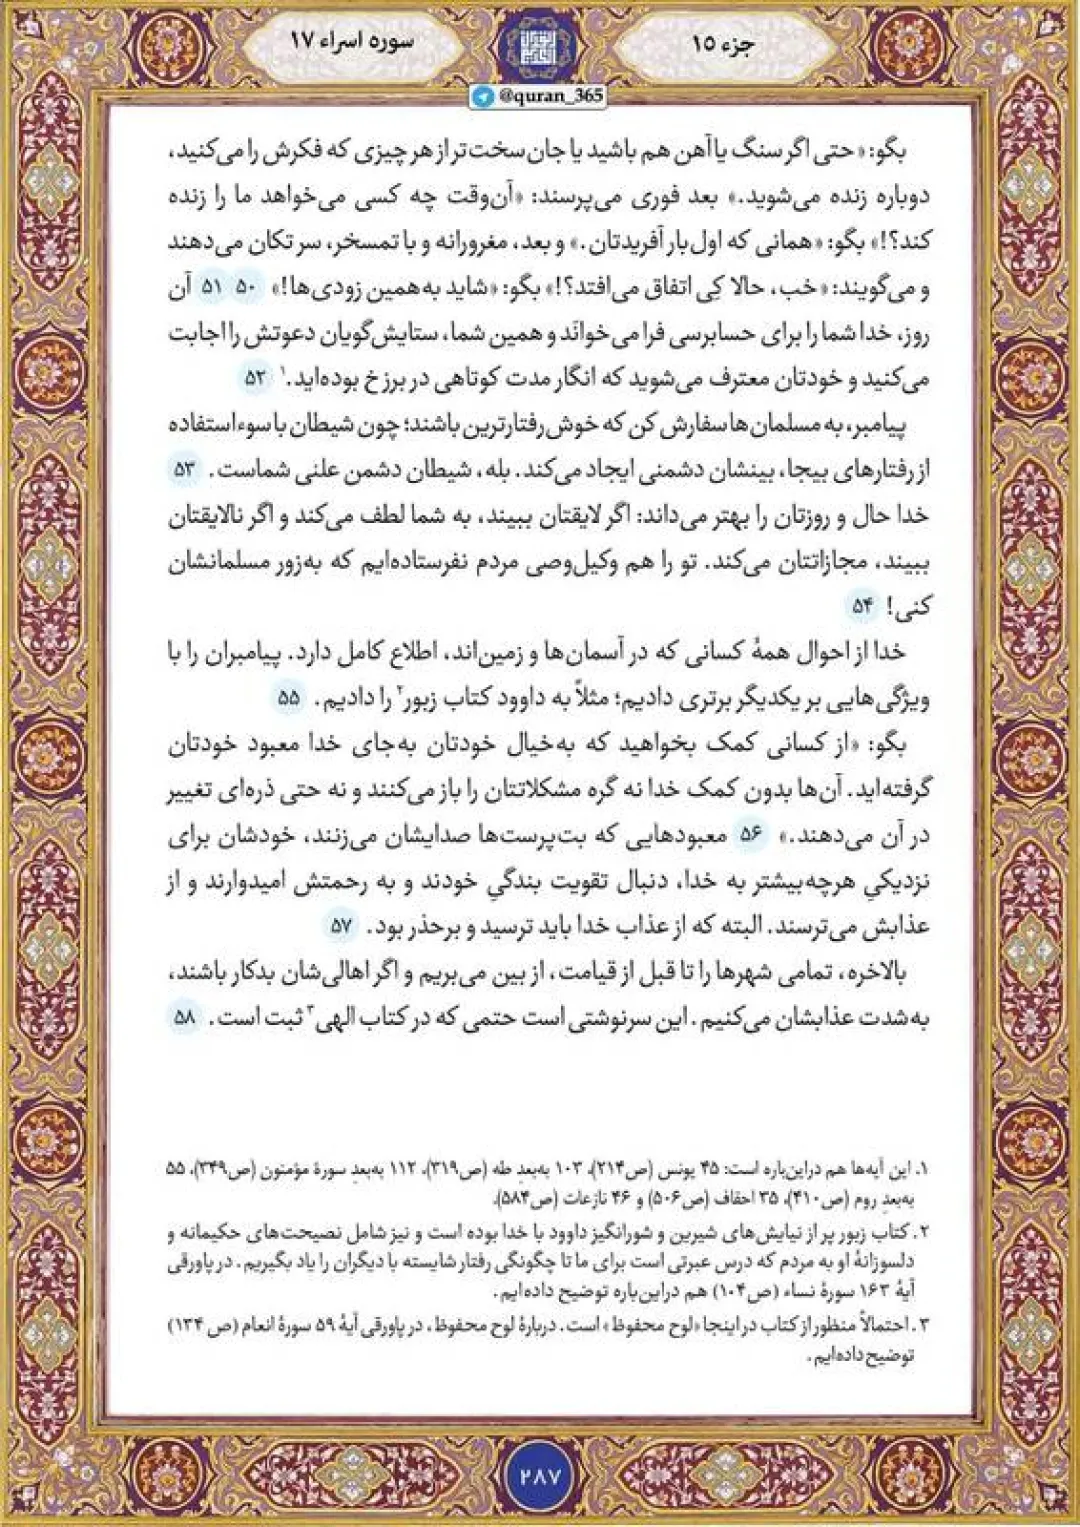 جزء ۱۵
سوره اسراء ۱۷
@quran_365
بگو: «حتی اگر سنگ یا آهن هم باشید یا جان‌سخت‌تر از هر چیزی که فکرش را می‌کنید،
دوباره زنده می‌شوید.» بعد فوری می‌پرسند: «آن‌وقت چه کسی می‌خواهد ما را زنده
کند؟!» بگو: «همانی که اول‌بار آفریدتان.» و بعد، مغرورانه و با تمسخر، سر تکان می‌دهند
و می‌گویند: «خب، حالا کِی اتفاق می‌افتد؟!» بگو: «شاید به‌همین زودی‌ها!» ۵۰ ۵۱ آن
روز، خدا شما را برای حسابرسی فرا می‌خوانَد و همین شما، ستایش‌گویان دعوتش را اجابت
می‌کنید و خودتان معترف می‌شوید که انگار مدت کوتاهی در برزخ بوده‌اید.۱ ۵۲
پیامبر، به مسلمان‌ها سفارش کن که خوش‌رفتارترین باشند؛ چون شیطان با سوءاستفاده
از رفتارهای بیجا، بینشان دشمنی ایجاد می‌کند. بله، شیطان دشمن علنی شماست. ۵۳
خدا حال و روزتان را بهتر می‌داند: اگر لایقتان ببیند، به شما لطف می‌کند و اگر نالایقتان
ببیند، مجازاتتان می‌کند. تو را هم وکیل‌وصی مردم نفرستاده‌ایم که به‌زور مسلمانشان
کنی! ۵۴
خدا از احوال همهٔ کسانی که در آسمان‌ها و زمین‌اند، اطلاع کامل دارد. پیامبران را با
ویژگی‌هایی بر یکدیگر برتری دادیم؛ مثلاً به داوود کتاب زبور۲ را دادیم. ۵۵
بگو: «از کسانی کمک بخواهید که به‌خیال خودتان به‌جای خدا معبود خودتان
گرفته‌اید. آن‌ها بدون کمک خدا نه گره مشکلاتتان را باز می‌کنند و نه حتی ذره‌ای تغییر
در آن می‌دهند.» ۵۶ معبودهایی که بت‌پرست‌ها صدایشان می‌زنند، خودشان برای
نزدیکیِ هرچه‌بیشتر به خدا، دنبال تقویت بندگیِ خودند و به رحمتش امیدوارند و از
عذابش می‌ترسند. البته که از عذاب خدا باید ترسید و برحذر بود. ۵۷
بالاخره، تمامی شهرها را تا قبل از قیامت، از بین می‌بریم و اگر اهالی‌شان بدکار باشند،
به‌شدت عذابشان می‌کنیم. این سرنوشتی است حتمی که در کتاب الهی۳ ثبت است. ۵۸
۱. این آیه‌ها هم دراین‌باره است: ۴۵ یونس (ص۲۱۴)، ۱۰۳ به‌بعدِ طه (ص۳۱۹)، ۱۱۲ به‌بعدِ سورهٔ مؤمنون (ص۳۴۹)، ۵۵
به‌بعدِ روم (ص۴۱۰)، ۳۵ احقاف (ص۵۰۶) و ۴۶ نازعات (ص۵۸۴).
۲. کتاب زبور پر از نیایش‌های شیرین و شورانگیز داوود با خدا بوده است و نیز شامل نصیحت‌های حکیمانه و
دلسوزانهٔ او به مردم که درس عبرتی است برای ما تا چگونگی رفتار شایسته با دیگران را یاد بگیریم. در پاورقی
آیهٔ ۱۶۳ سورهٔ نساء (ص۱۰۴) هم دراین‌باره توضیح داده‌ایم.
۳. احتمالاً منظور از کتاب در اینجا «لوح محفوظ» است. دربارهٔ لوح محفوظ، در پاورقی آیهٔ ۵۹ سورهٔ انعام (ص ۱۳۴)
توضیح داده‌ایم.
۲۸۷